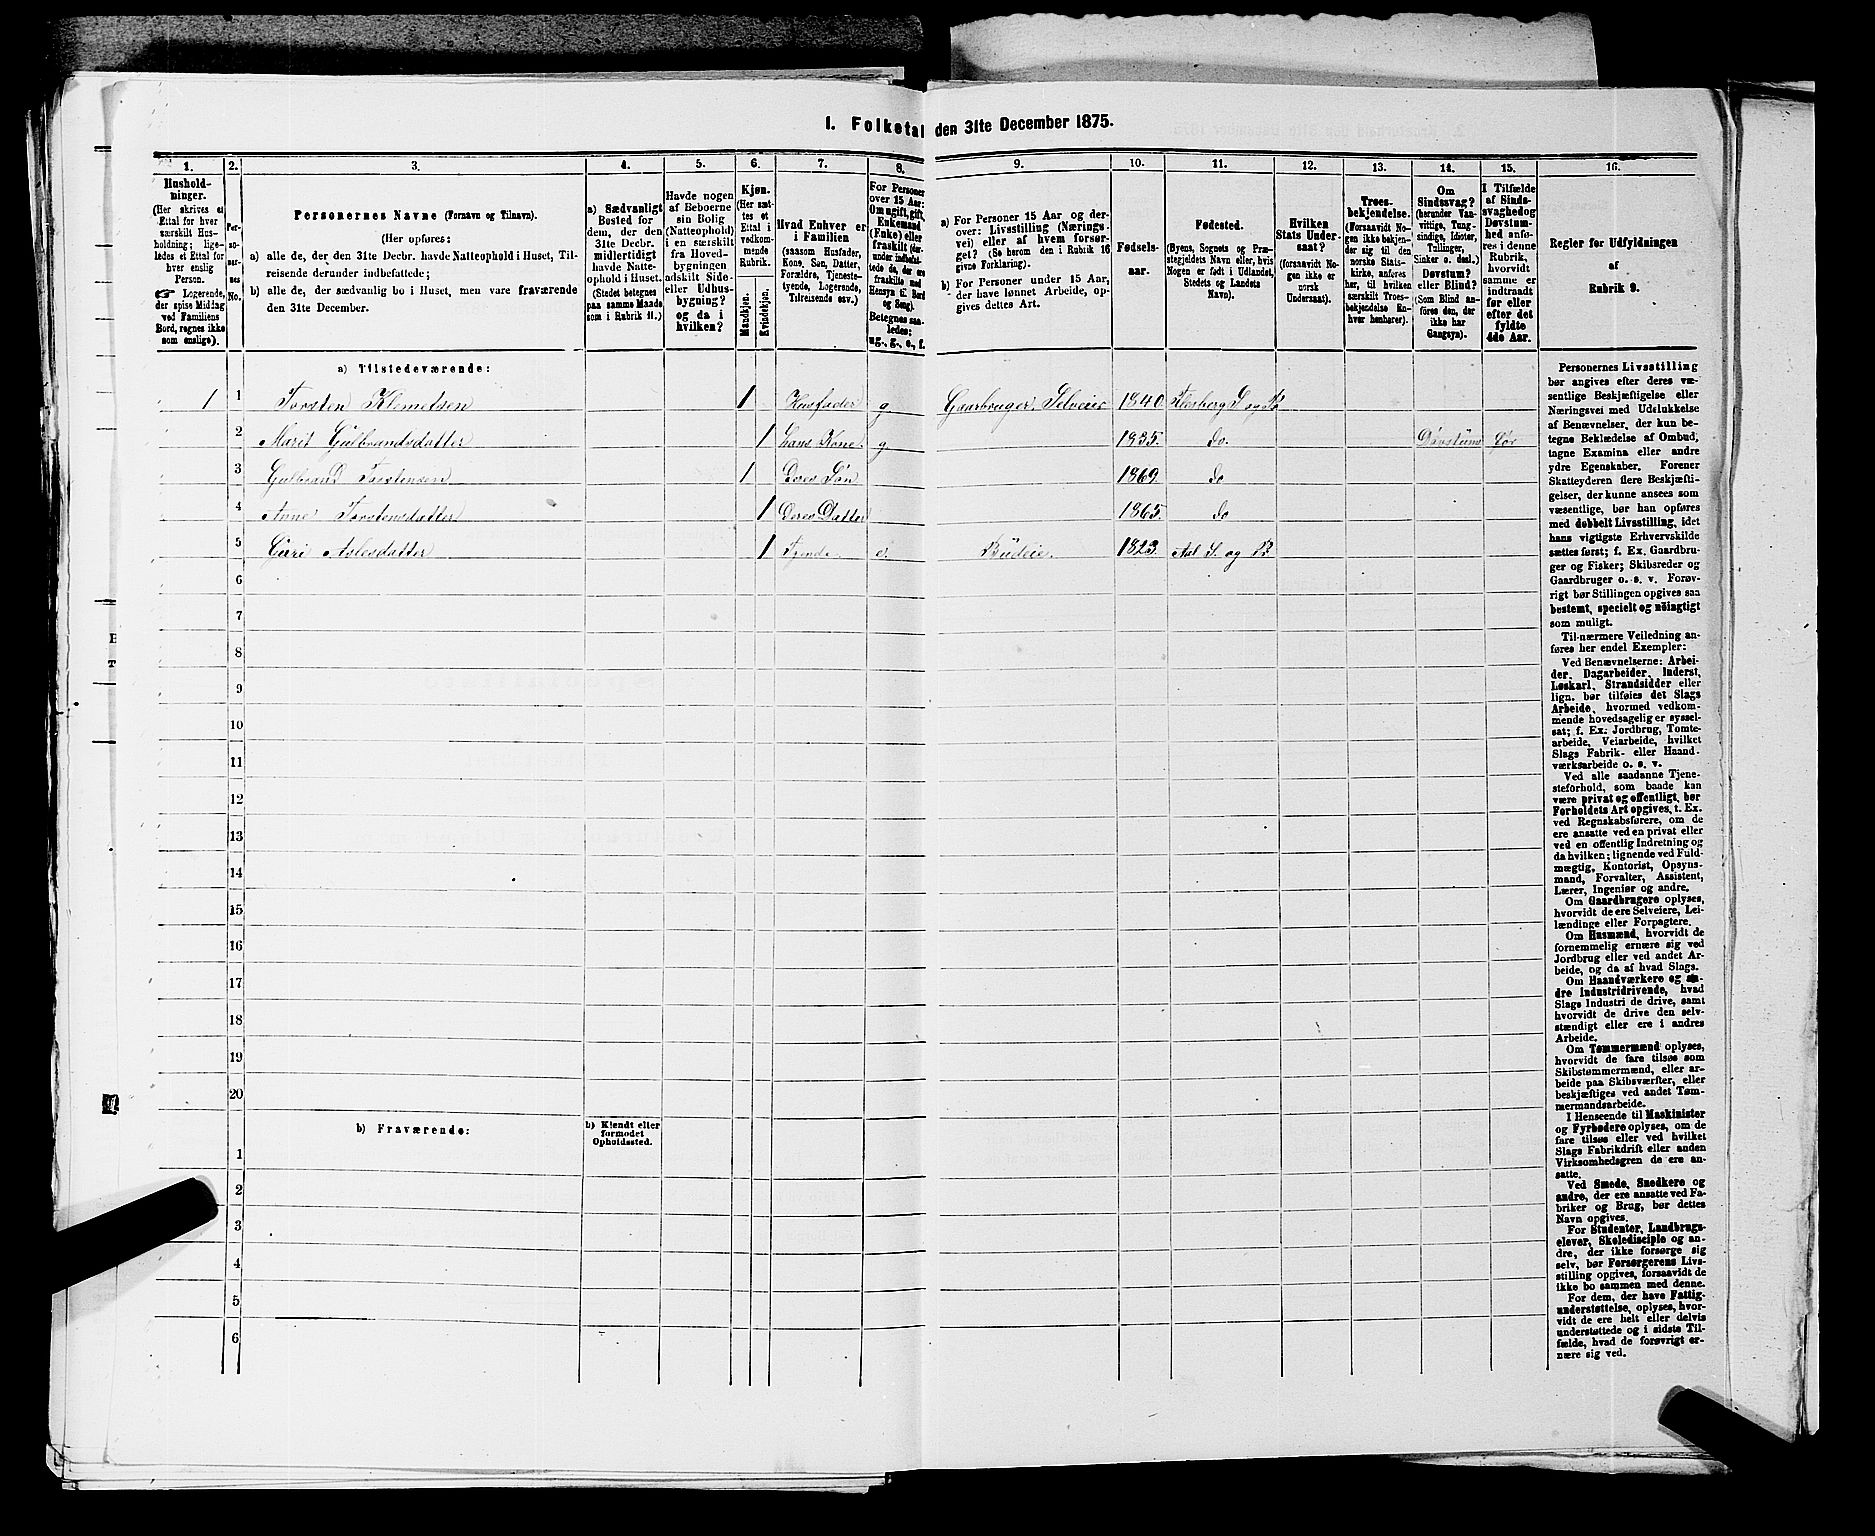 I. Folketal den 31te December 1875.
1. 2. 3. 4. 5. 6. 7. 8. 9. 10. 11. 12. 13. 14. 15. 16.
Hushold-
ninger.
(Her skrives et
Ettal for hver
særskilt Hus-
holdning; lige-
ledes et Ettal for
hver enslig
Person.
☞ Logerende,
der spise Middag
ved Familiens
Bord, regnes ikke
som enslige).
Per-
so-
ner-
nes
No.
Personernes Navne (Fornavn og Tilnavn).
(Her opføres:
a) alle de, der den 31te Decbr. havde Natteophold i Huset, Til-
reisende derunder indbefattede;
b) alle de, der sædvanlig bo i Huset, men vare fraværende
den 31te December.
a) Sædvanligt
Bosted for
dem, der den
31te Decbr.
midlertidigt
havde Natte-
ophold i Huset.
(Stedet betegnes
paa samme Maade
som i Rubrik 11.)
Havde nogen
af Beboerne
sin Bolig
(Natteophold)
i en særskilt
fra Hoved-
bygningen
adskilt Side-
eller Udhus-
bygning?
og da i
hvilken?
Kjøn.
(Her sæt-
tes et
Ettal i
vedkom-
mende
Rubrik.
Mandkjøn.
Kvindekjøn.
Hvad Enhver er
i Familien
(saasom Husfader,
Kone, Søn, Datter,
Forældre, Tjeneste-
tyende, Logerende,
Tilreisende osv.)
For Personer
over 15 Aar:
Om ugift, gift,
Enkemand
(Enke) eller
fraskilt (der-
under indbefat-
tede de, der ere
fraskilte med
Hensyn til Bord
og Seng).
Betegnes saa-
ledes:
ug., g., e., f.
a) For Personer 15 Aar og der-
over: Livsstilling (Nærings-
vei) eller af hvem forsør-
get? (Se herom den i Rubrik 16
givne Forklaring).
b) For Personer under 15 Aar,
der have lønnet Arbeide, op-
gives dettes Art.
Fødsels-
aar.
Fødested.
(Byens, Sognets og Præ-
stegjeldets Navn eller, hvis
Nogen er født i Udlandet,
Stedets og Landets
Navn).
Hvilken
Stats Under-
saat?
(forsaavidt No-
gen ikke er
norsk
Undersaat).
Troes-
bekjendelse.
(Forsaavidt No-
gen ikke bekjen-
der sig til den
norske Stats-
kirke, anføres
her, til hvilken
særskilt Troes-
bekjendelse En-
hver henhører).
Om
Sindssvag?
(herunder Van-
vittige, Tung-
sindige, Idioter,
Tullinger,
Sinker o. desl.)
Døvstum?
eller Blind?
(Som Blind an-
føres den, der
ikke har
Gangsyn).
I Tilfælde
af Sinds-
svaghed og
Døvstum-
hed anfø-
res i denne
Rubrik,
hvorvidt
samme er
indtraadt
før eller
efter det
fyldte
4de Aar.
Regler for Udfyldningen
af
Rubrik 9.
a) Tilstedeværende:
1 1 Torsten Klemetsen 1 Husfader g Gaarbruger, Selveier 1840 Flesberg S. og P.
2 Marit Gulbrandsdatter 1 hans Kone g 1835. do. Døvstum før
3 Gulbrand Torstensen 1 Deres Søn 1869. do
4 Anne Torstensdatter 1 Deres Datter 1865. do
5 Guri Aslesdatter 1 Tjende. e. Budeie. 1823. Aal S. og P.
6
7
8
9
10
11
12
13
14
15
16
17
18
19
20
b) Fraværende:
b) Kjendt eller
formodet
Opholdssted.
1
2
3
4
5
6
Personernes Livsstilling
bør angives efter deres væ-
sentlige Beskjæftigelse eller
Næringsvei med Udelukkelse
af Benævnelser, der kun be-
tegne Beklædelse af Ombud,
tagne Examina eller andre
ydre Egenskaber. Forener
Skatteyderen flere Beskjæfti-
gelser, der kunne ansees som
væsentlige, bør han opføres
med dobbelt Livsstilling, idet
hans vigtigste Erhvervskilde
sættes først; f. Ex. Gaardbru-
ger og Fisker; Skibsreder og
Gaardbruger o. s. v. Forøv-
rigt bør Stillingen opgives saa
bestemt, specielt og nöiagtigt
som muligt.
Til nærmere Veiledning an-
føres her endel Exempler:
Ved Benævnelserne: Arbei-
der, Dagarbeider, Inderst,
Løskarl, Strandsidder eller
lign. bør tilføies det Slags
Arbeide, hvormed vedkom-
mende hovedsagelig er syssel-
sat; f. Ex: Jordbrug, Tomte-
arbeide, Veiarbeide, hvilket
Slags Fabrik- eller Haand-
værksarbeide o. s. v.
Ved alle saadanne Tjene-
steforhold, som baade kan
være privat og offentligt, bør
Forholdets Art opgives, t. Ex.
ved Regnskabsførere, om de
ere ansatte ved en privat eller
ved en offentlig Indretning og
da hvilken; lignende ved Fuld-
mægtig, Kontorist, Opsyns-
mand, Forvalter, Assistent,
Lærer, Ingeniør og andre.
Om Gaardbrugere oplyses,
hvorvidt de ere Selveiere, Lei-
lændinge eller Forpagtere.
Om Husmænd, hvorvidt de
fornemmelig ernære sig ved
Jordbrug eller ved andet Ar-
beide, og da af hvad Slags.
Om Haandværkere og an-
dre Industridrivende, hvad
Slags Industri de drive, samt
hvorvidt de drive den selv-
stændigt eller ere i andres
Arbeide.
Om Tømmermænd oplyses,
hvorvidt de fare tilsøs som
Skibstømmermænd, eller ar-
beide paa Skibsværfter, eller
beskjæftiges ved andet Tøm-
mermandsarbeide.
I Henseende til Maskinister
og Fyrbødere oplyses, om de
fare tilsøs eller ved hvilket
Slags Fabrikdrift eller anden
Virksomhedsgren de ere an-
satte.
Ved Smede, Snedkere og
andre, der ere ansatte ved Fa-
briker og Brug, bør dettes
Navn opgives.
For Studenter, Landbrugs-
elever, Skoledisciple og an-
dre, der ikke forsørge sig
selv, bør Forsørgerens Livs-
stilling opgives, forsaavidt de
ikke bo sammen med denne.
For dem, der have Fattig-
understøttelse, oplyses, hvor-
vidt de ere helt eller delvis
understøttede og i sidste Til-
fælde, hvad de forøvrigt er-
nære sig ved.